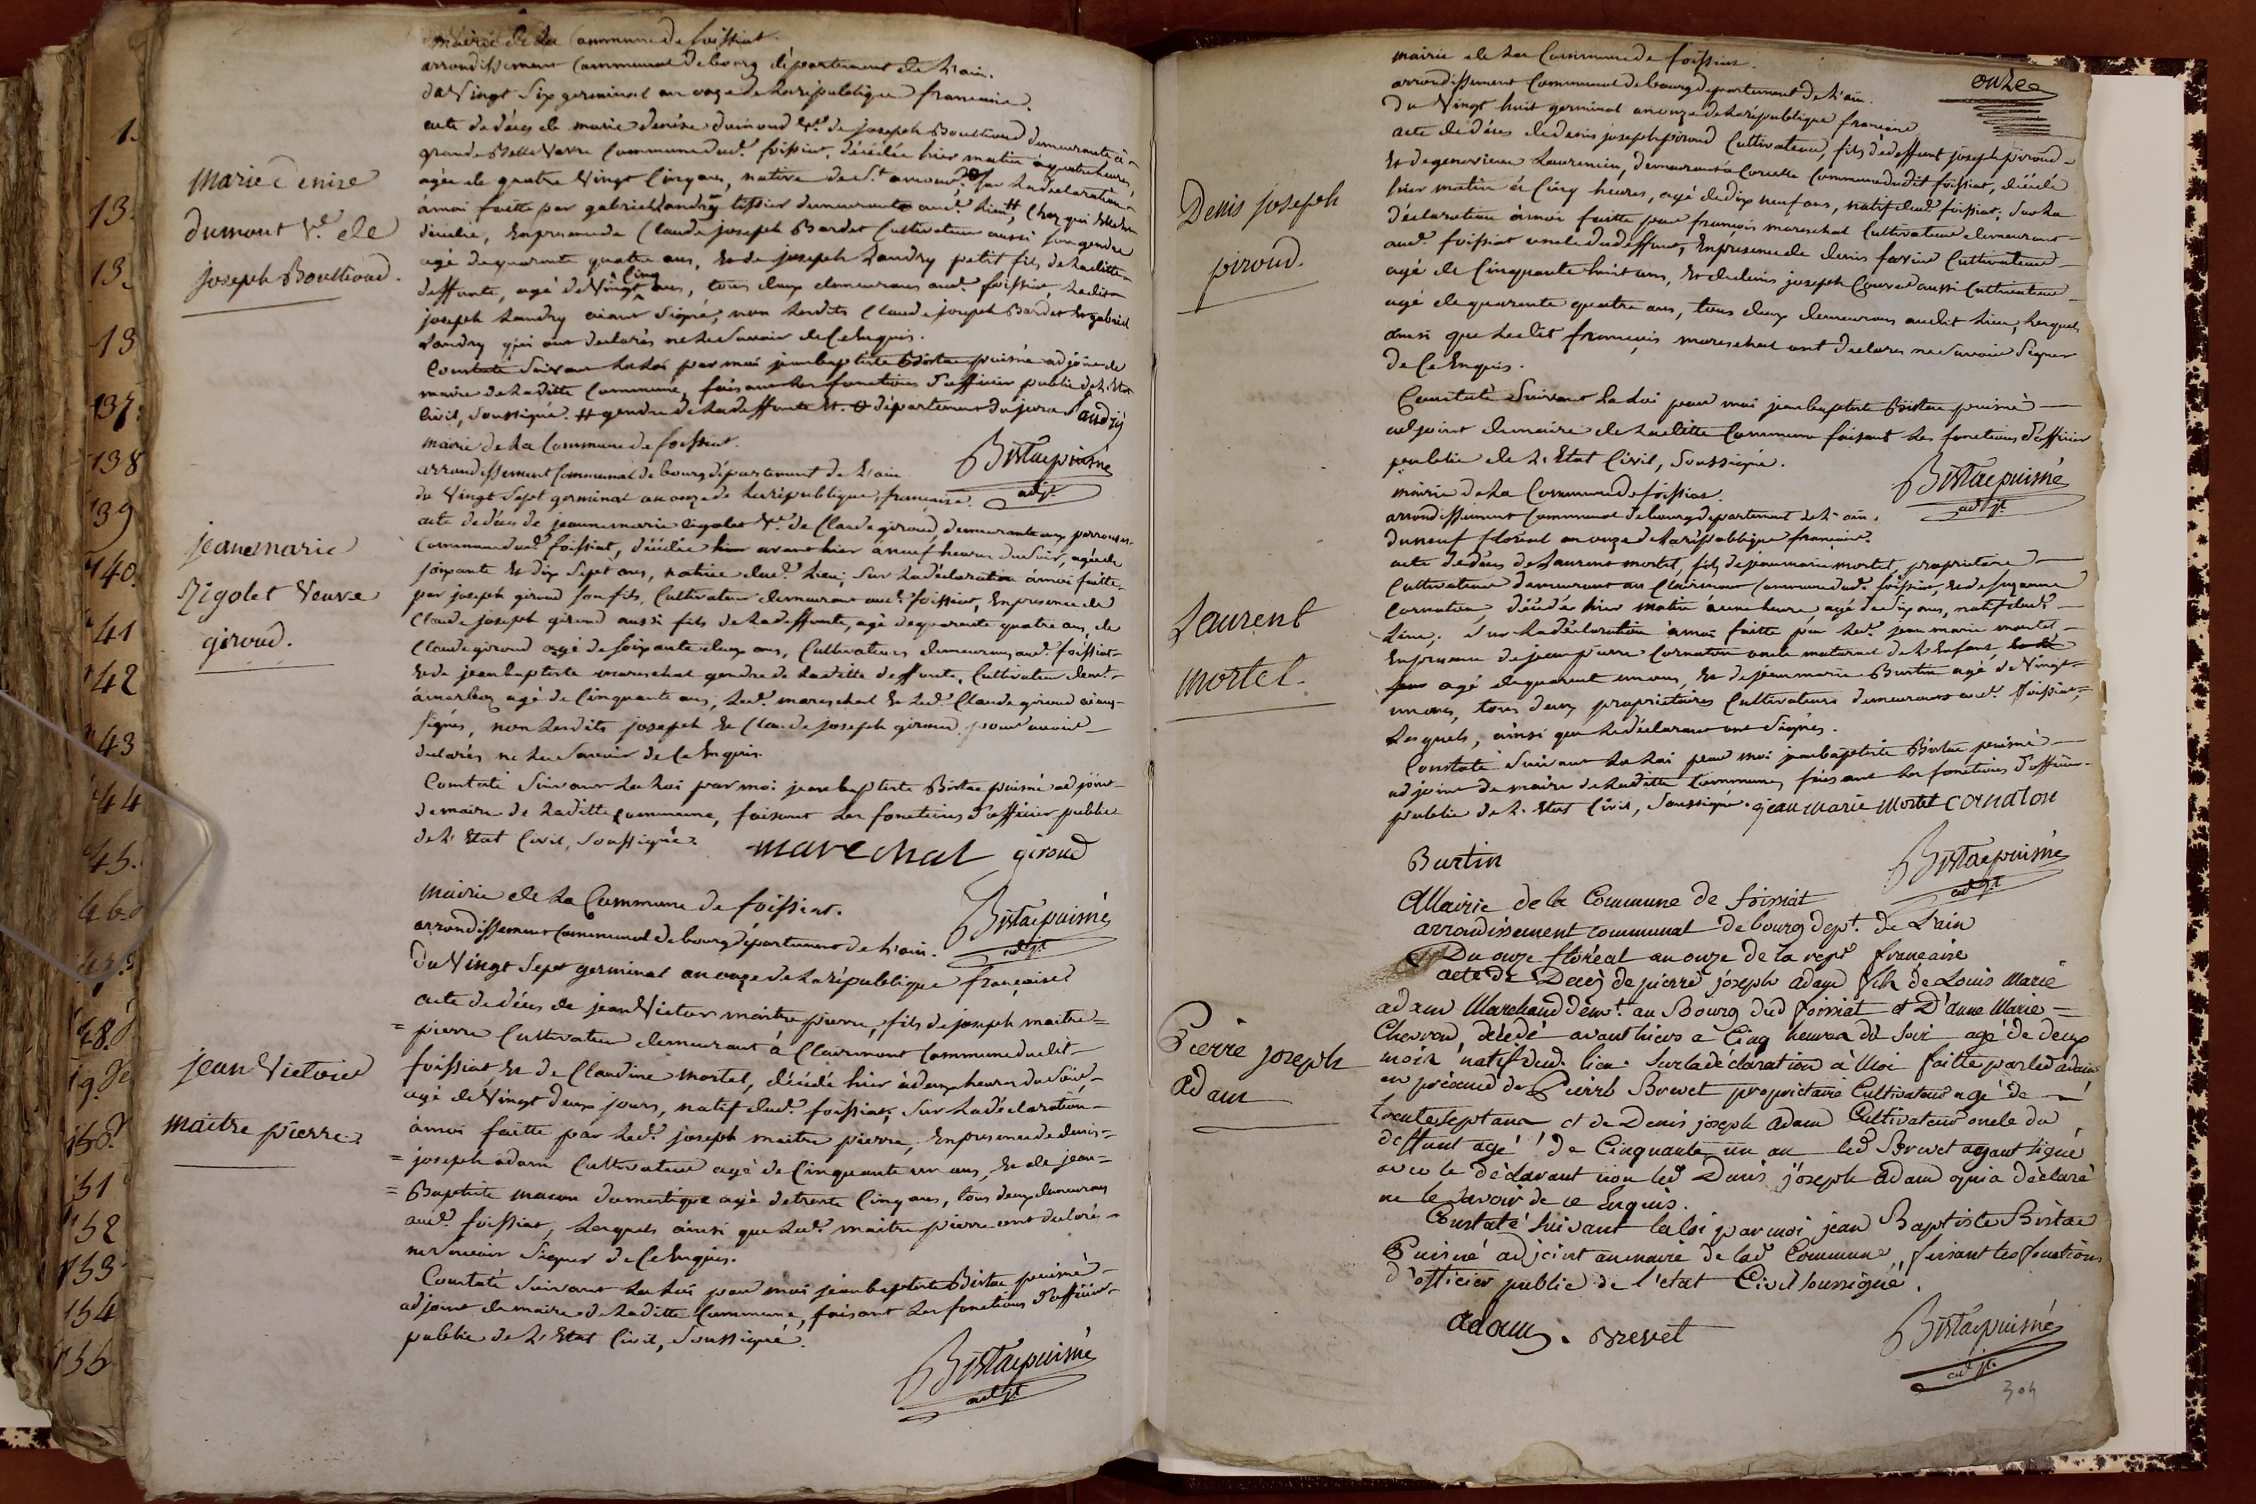 mairie de la Commune de foissiat.
arrondissement Communal de bourg département de L'ain.
du Vingt Six germinal an onze de la république francaise.
acte de décés de marie denise dumond Ve. de joseph Boullioud demeurante à
grande Belle Commune dud. foissiat, décédée hier matin à quatre heures,
agée de quatre Vingt Cinq ans, native de St. amour, Sur la déclaration
à moi faitte par gabriel Landry tissier demeurant aud. Lieu, Chez qui Elle Est
décédée, En presence de Claude joseph Bardet Cultivateur aussi Son gendre
agé de quarante quatre ans, Et de joseph Landry petit fils de Laditte
deffunte, agé de Vingt Cinq ans, tous deux demeurans aud. foissiat, Ledit
joseph Landry aiant Signé, non Lesdits Claude joseph Bardet Et gabriel
Landry qui ont declarés ne Le Savoir de Ce Enquis.
Constaté Suivant La Loi par moi jean baptiste Bistac puisné adjoint de
maire de Laditte Commune, faisant Les fonctions d'officier public de L'Etat
Civil, Soussigné. # gendre de La deffunte Et. département du jura Landry
Bistac puisné
adjt.
Marie Denise
dumont Ve. de
joseph Boullioud.
mairie de La Commune de foissiat.
arrondissement Communal de bourg département de L'ain
du Vingt Sept germinal an onze de La république française.
acte de décés de jeanne marie Rigolet Ve. de Claude giroud, demeurante aux
Commune dud. foissiat, décédée avant hier à neuf heures du Soir, agée de
soixante Et dix Sept ans, native dud. Lieu; Sur La déclaration à moi faitte
par joseph giroud Son fils, Cultivateur demeurant aud. foissiat, En presence de
Claude joseph giroud aussi fils de La deffunte, agé de quarante quatre ans, de
Claude giroud agé de soixante deux ans, Cultivateurs demeurans aud. foissiat
Et de jean baptiste mareschal gendre de Laditte deffunte, Cultivateur demt.
à marboz agé de Cinquante ans, Led. mareschal Et Led. Claude giroud aians
signés, non Lesdits joseph Et Claude joseph giroud pour avoir
declarés ne Le Savoir de Ce Enquis.
Constaté Suivant La Loi par moi jean baptiste Bistac puisné adjoint
de maire de Laditte Commune, faisant Les fonctions d'officier public
de L'Etat Civil, Soussigné.
marechal giroud
Bistac puisné
adjt.
jeanne marie
Rigolet Veuve
giroud.
mairie de La Commune de foissiat.
arrondissement Communal de bourg département de L'ain.
du Vingt Sept germinal an onze de La république française
acte de décés de jean Victor maitre pierre, fils de joseph maitre=
=pierre Cultivateur demeurant à Clairmont Commune dudit
foissiat Et de Claudine Mortel, décédé hier à deux heures du Soir,
agé de Vingt deux jours, natif dud. foissiat; Sur La déclaration
à moi faitte par Led. joseph maitre pierre, En presence de denis=
=joseph adam Cultivateur agé de Cinquante un ans, Et de jean=
=Baptiste macon domestique agé de trente Cinq ans, tous deux demeurans
aud. foissiat, Lesquels ainsi que Led. maitre pierre ont declarés
ne Savoir Signer de Ce Enquis.
Constaté Suivant La Loi par moi jean baptiste Bistac puisné
adjoint de maire de Laditte Commune, faisant Les fonctions d'officier
public de L'Etat Civil, Soussigné.
Bistac puisné
adjt.
jean Victoire
maitre pierre.
1.
13.
13.
13
137.
138
139
140.
141
142
143
144
145.
146.
148.
150.
151
152
153
154
155
onze
mairie de La Commune de foissiat.
arrondissement Communal de bourg département de L'ain.
du Vingt huit germinal an onze de La république francaise
acte de décés de denis joseph piroud Cultivateur, fils de deffunt joseph piroud
Et de genevieve Laurencin, demeurant à Cornelle Commune dudit foissiat, décédé
hier matin à Cinq heures, agé de dix neuf ans, natif dud. foissiat; Sur La
déclaration à moi faitte par françois mareschal Cultivateur demeurant
aud. foissiat oncle du deffunt, En presence de denis favier Cultivateur
agé de Cinquante huit ans, Et de denis joseph aussi Cultivateur
agé de quarante quatre ans, tous deux demeurans audit Lieu, Lesquels
ainsi que Ledit françois mareschal ont declarés ne Savoir Signer
de Ce Enquis.
Constaté Suivant La Loi par moi jean baptiste Bistac puisné
adjoint de maire de Laditte Commune faisant Les fonctions d'officier
public de L'Etat Civil, Soussigné.
Bistac puisné
adjt.
Denis joseph
piroud.
mairie de La Commune de foissiat.
arrondissement Communal de bourg département de L'ain.
du neuf floréal an onze de La république française.
acte de décés de Laurent mortel, fils de jean marie mortel, proprietaire
Cultivateur demeurant au Clairmont Commune dud. foissiat, Et de Suzanne
Cornaton, décédé hier matin à une heure agé de Six ans, natif dud.
Lieu; Sur La déclaration à moi faitte par Led. jean marie mortel
En presence de jean pierre Cornaton oncle maternel de L'Enfant,
agé de quarante un ans, Et de jean marie Burtin agé de Vingt
un ans, tous deux propriétaires Cultivateurs demeurans aud. foissiat,
Lesquels, ainsi que Le déclarant ont Signés.
Constaté Suivant La Loi par moi jean baptiste Bistac puisné
adjoint de maire de Laditte Commune, faisant Les fonctions d'officier
public de L'Etat Civil, Soussigné. jean marie Mortel Cornaton
Burtin
Bistac puisné
adjt.
Laurent
mortel.
Mairie de la Commune de foissiat
arrondissement communal de bourg dept. de L'ain
Du onze floréal an onze de la rept. française
acte de Décés de pierre joseph adam fils de Louis Marie
adam Marchand demt. au Bourg dud foissiat et D'anne Marie
Chevrou décédé avant hier a Cinq heures du Soir agé de deux
mois natif dud. lieu. Sur la déclaration à Moi faitte par led adam
en présence de Pierre Brevet proprietaire Cultivateur agé de
trente Sept ans et de Denis joseph adam Cultivateur oncle du
deffunt agé de Cinquante un an led Brevet ayant signé
avec le déclarant non led Denis joseph adam qui a déclaré
ne le Savoir de ce Enquis.
Constaté Suivant la loi par moi jean Baptiste Bistac
Puisné adjoint au maire de lad Commune, faisant les fonctions
d'officier public de l'etat Civil soussigné.
adam. Brevet
Bistac puisné
adjt.
Pierre joseph
adam
304